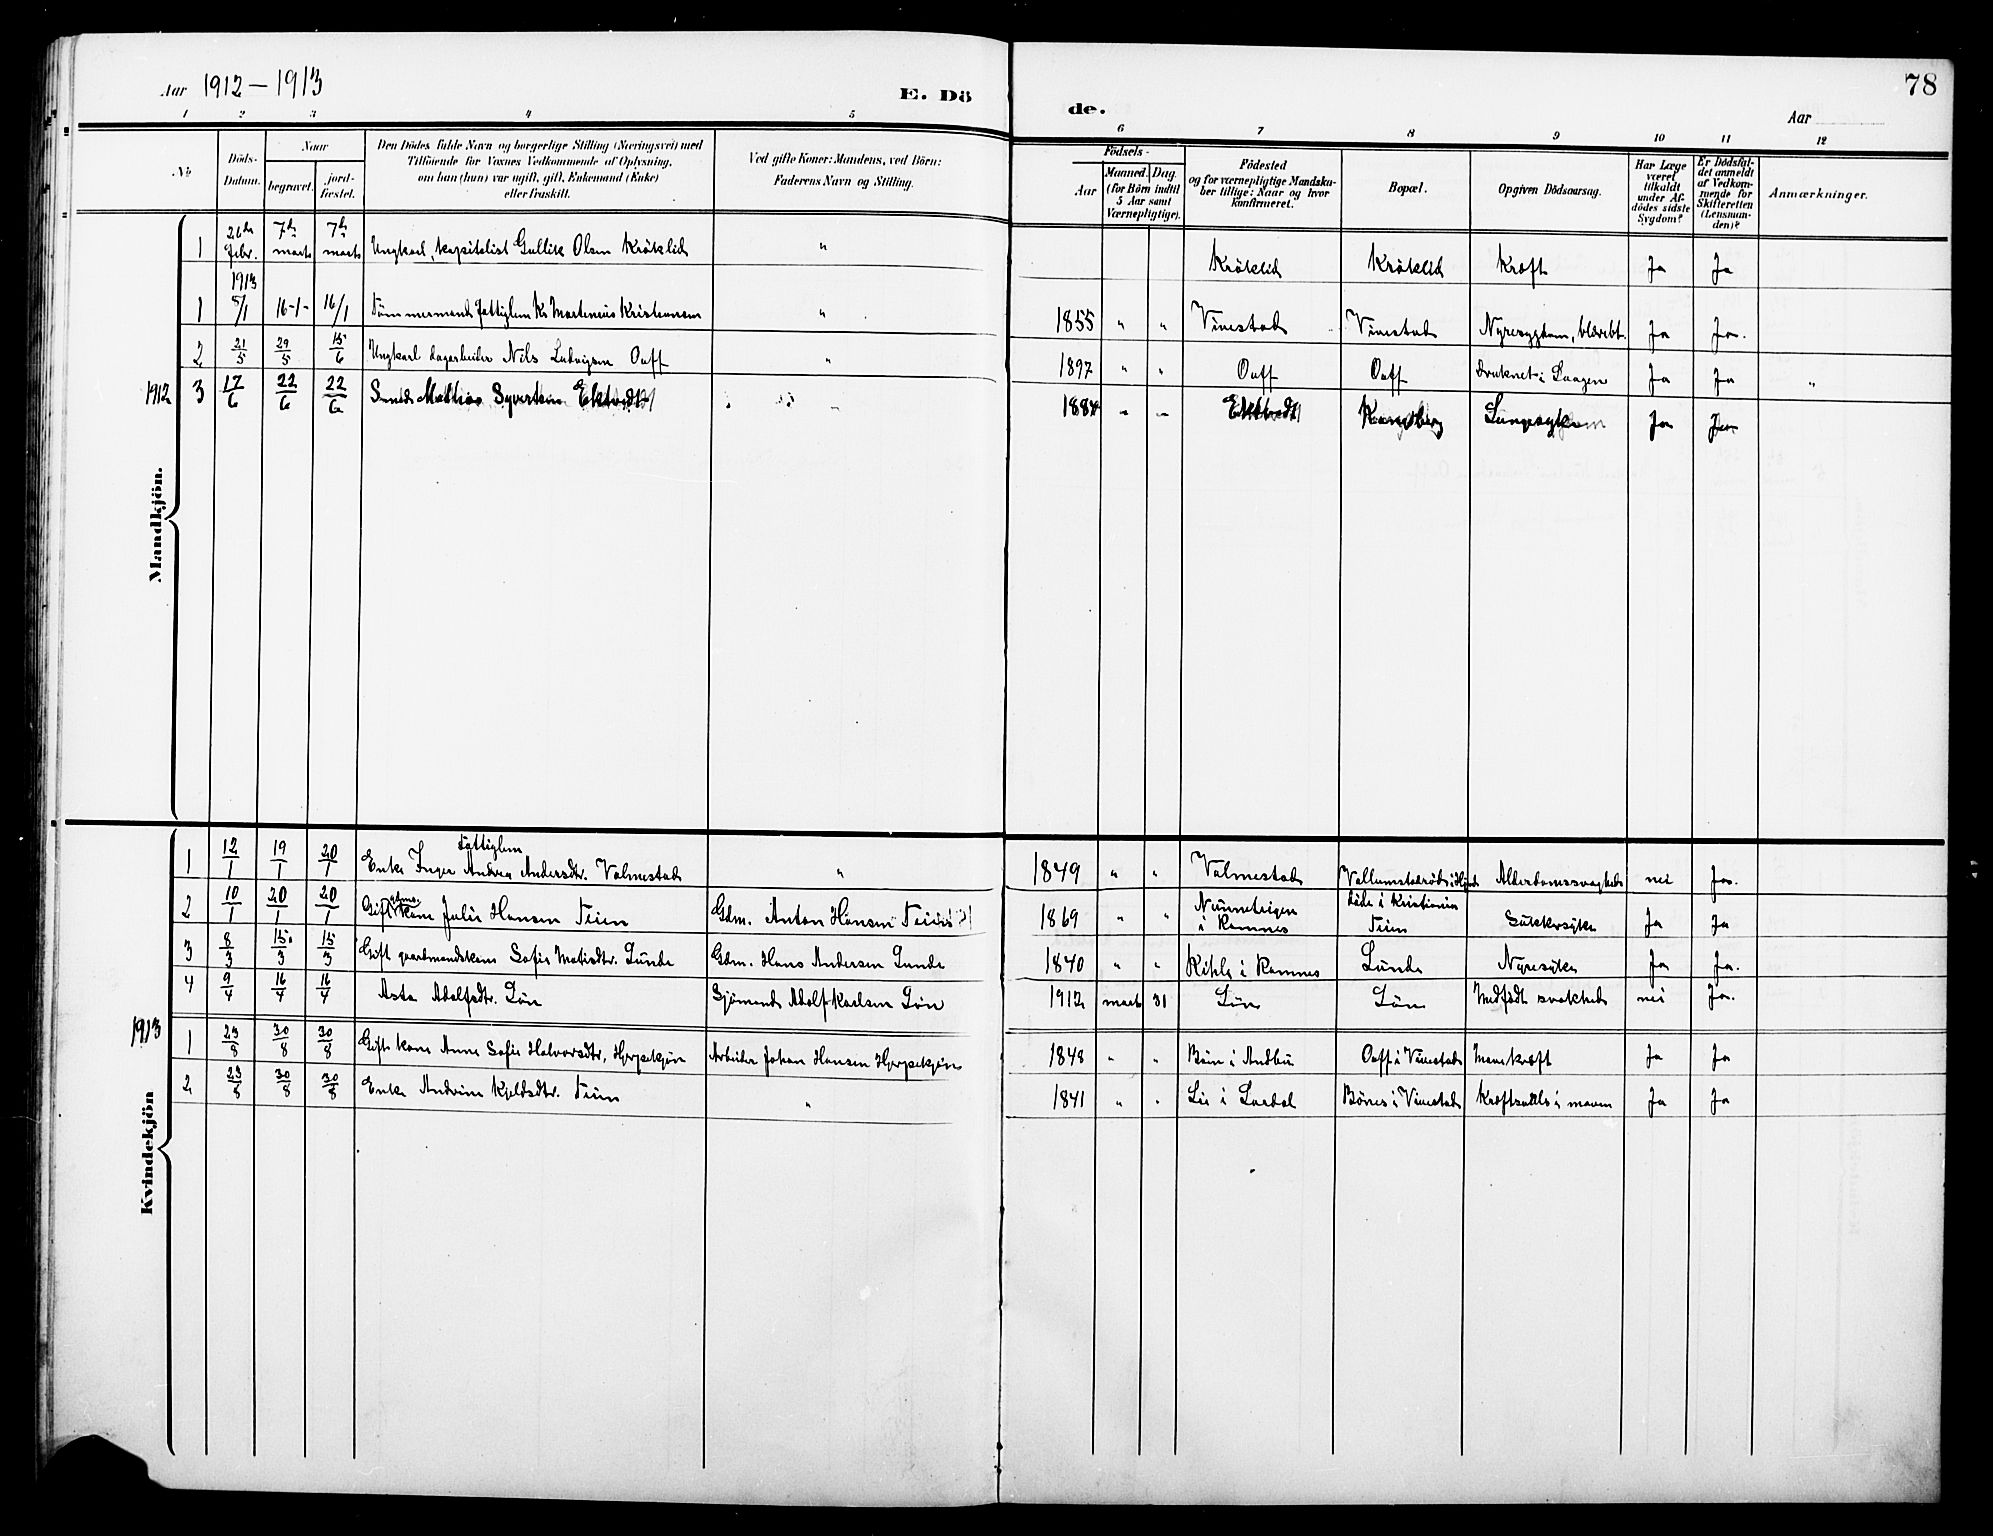 Aar 1912-1913
E. Dö
de.
Aar
78
1 2 3 4 5 6 7 8 9 10 11 12
No
Döds-Datum.
Naar
begravet.
jord-fæstet.
Den Dödes fulde Navn og borgerlige Stilling (Næringsvei) med
Tilföiende for Voxnes Vedkommende af Oplysning,
om han (hun) var ugift, gift, Enkemand (Enke)
eller fraskilt.
Ved gifte Koner: Mandens, ved Börn:
Faderens Navn og Stilling.
Födsels-
Aar
Maaned. Dag.
(for Börn indtil
5 Aar samt
Værnepligtige).
Födested
og for værnepligtige Mandska-
ber tillige: Naar og hvor
konfirmeret.
Bopæl.
Opgiven Dödsaarsag.
Har Læge
været
tilkaldt
under Af-
dödes sidste
Sygdom?
Er Dödsfal-
det anmeldt
af Vedkom-
mende for
Skifteretten
(Lensman-
den)?
Anmærkninger.
1 26de febr. 7de marts 7de marts Ungkarl, kapitalist Gullik Olsen Kröklid " Kröklid Kröklid Kræft Ja Ja
1913
1 5/1 16-1- 16/1 Tömmermand Martenius Kristensen " 1855 " " Vinestad Vinestad Nyresygdom, Ja Ja.
2 21/5 29/5 15/6 Ungkarl dagarbeider Nils Ludvigsen Oaff " 1897 " " Oaff Oaff Druknet i Laagen Ja Ja "
1912
3 17/6 22/6 22/6 Smed Mathias Syvertsen 1884 " " Kongsberg Ja Ja
Mandkjön.
Fattiglem
1 12/1 19/1 20/1 Enke Inger Andrea Andersdtr. Valmestad " 1849 " " Valmestad Alderdomssvaghed nei Ja.
2 10/1 20/1 20/1 Gift kone Julie Hansen Feien Gdm. Anton Hansen Feien 1869 " " i Ramnes Döde i Kristiania Feien Sukkersyke Ja Ja
3 8/3 15/3 15/3 Gift gaardmandskone Sofie Matisdtr. Lunde Gdm. Hans Andersen Lunde 1840 " " i Ramnes Lunde Nyresyke Ja Ja.
4 9/4 16/4 16/4 Asta Adolfsdtr. Lön Sjömand Adolf Karlsen Lön 1912 marts 31 Lön Lön Medfödt svakhed nei Ja.
1913
1 23/8 30/8 30/8 Gift kone Anne Sofie Halvorsdtr. Hjerpekjön Arbeider Johan Hansen Hjerpekjön 1848 " " i Andbu Oaff i Vinestad Mavekræft Ja Ja
2 23/8 30/8 30/8 Enke Andrine Kjeldsdtr. Feien " 1841 " " Lie i Lardal Bönes i Vinestad i maven Ja Ja
Kvindekjön